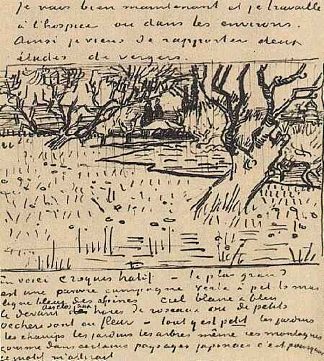 Je vais bien maintenant et je travaille
à l'hospice ou dans les environs.
Ainsi je viens de rapporter deux
études de vergers.
En voici croquis hâtif – le plus grand
est une pauvre campagne verte à petits mas
ligne bleue des alpines ciel blanc & bleu
le devant des haies de roseaux où de petits
pechers sont en fleur – tout y est petit les jardins
les champs les jardins les arbres même ces montagnes
comme dans certains paysages japonais c'est pourquoi
ce motif m'attirait